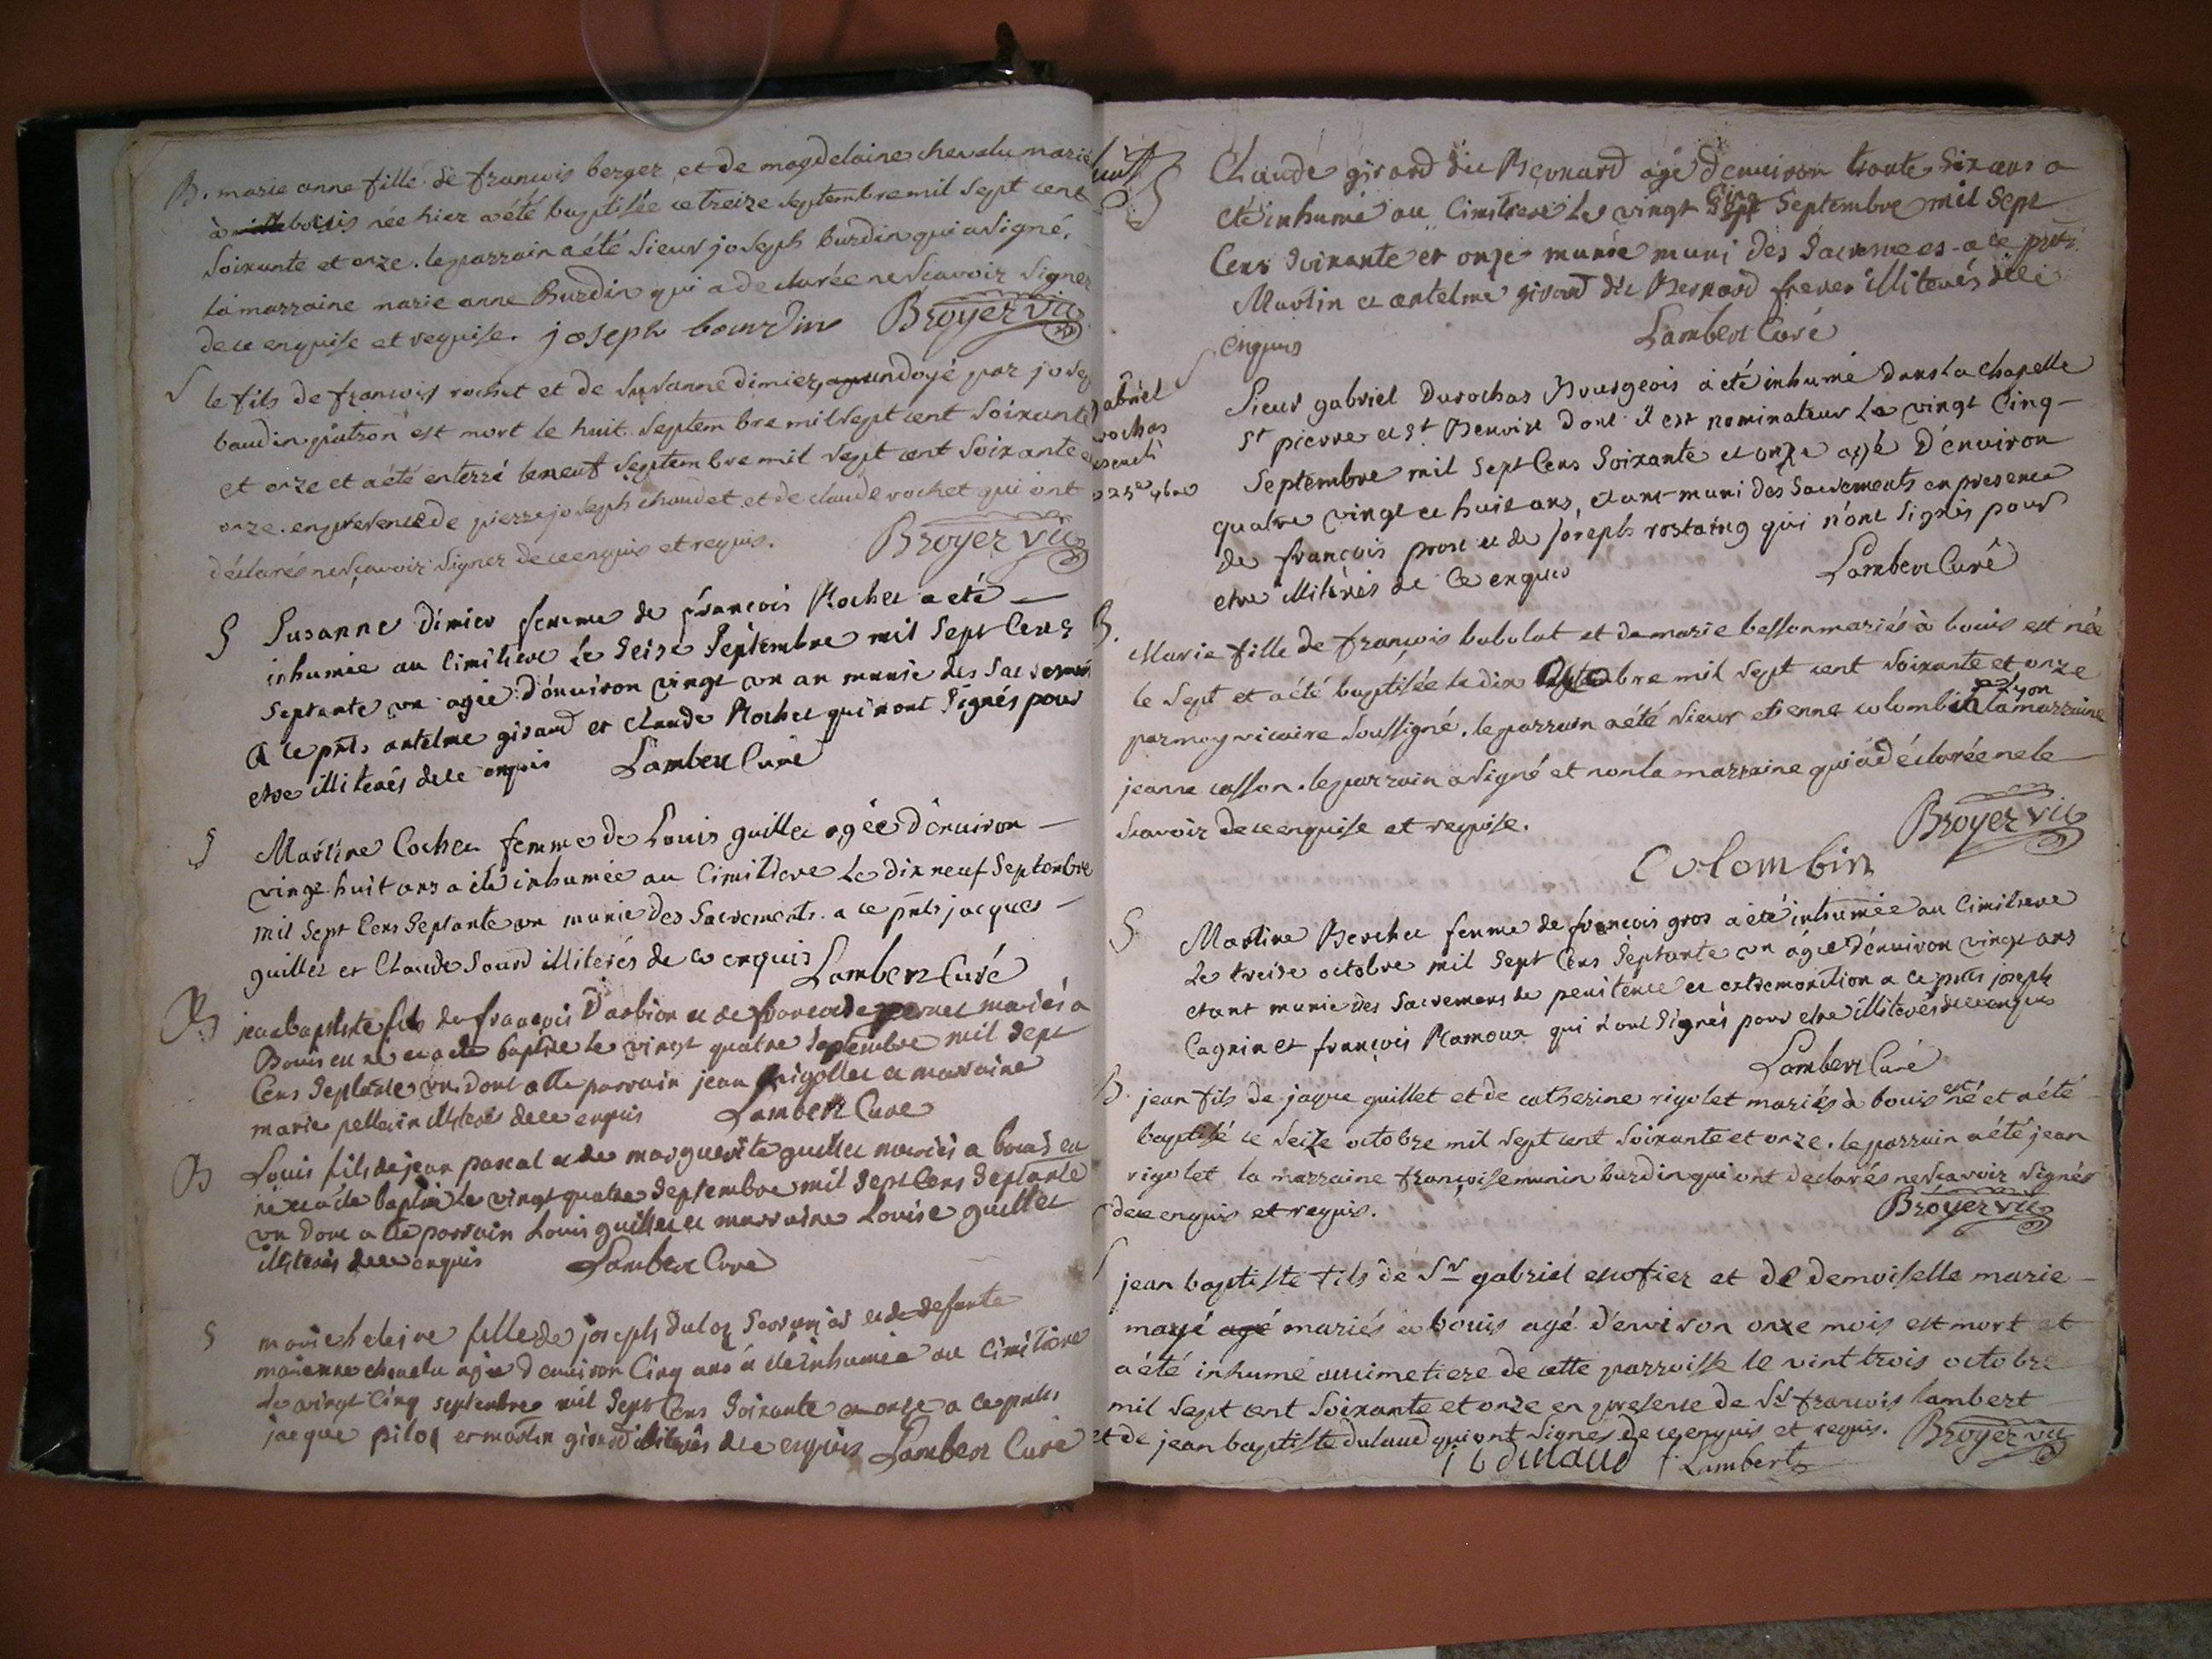 B. marie anne fille de francois berger, et de magdelaine chevalu marié
à bouis née hier a été baptisée ce treize septembre mil sept cent
soixante et onze. le parrain a été sieur joseph burdin qui a signé.
la marraine marie anne Burdin qui a declarée ne scavoir signer
de ce enquise et requise. joseph bourdin Broyer vic
S le fils de francois rochet et de susanne dimier, ondoyé par jose
baudin patron est mort le huit septembre mil sept cent soixante
et onze et a été enterré le neuf septembre mil sept cent soixante e
onze. en presence de pierre joseph chaudet et de claude rochet qui ont
déclarés ne scavoir signer de ce enquis et requis. Broyer vic
S Susanne dimier femme de francois Rochet a eté
inhumée au Cimitiere le seise septembre mil sept Cens
septante un agée d'environ vingt un an munie des sacremens
a ce pnts antelme girard et claude Rochet qui n'ont signés pour
etre illiterés de ce enquis Lambert Curé
S Martine Cochet femme de Louis guillet agée d'environ
vingt huit ans a été inhumée au Cimitiere Le dix neuf Septembre
mil sept Cens septante un munie des sacrements. a ce pnts jacques
guillet et Claude sourd illiterés de ce enquis Lambert Curé
B jean baptiste fils de francois Darbion et de francoise mariés a
Bouis est né et a ete baptisé le vingt quatre septembre mil sept
Cens septante un. dont a ete parrain jean rigollet et marraine
marie pellerin illiterés de ce enquis Lambert Curé
B Louis fils de jean pascal et de marguerite guillet mariés a bouis est
né et a ete baptisé Le vingt quatre septembre mil sept Cens septante
un dont a ete parrain Louis guillet et marraine Louise guillet
illiterés de ce enquis Lambert Curé
S marie heleine fille de joseph dulog et de defunte
chevalu agée d'environ Cinq ans a été inhumée au Cimitiere
Le vingt Cinq septembre mil sept Cens soixante et onze a ce pnts
jacque pilod et martin girard illiterés de ce enquis Lambert Curé
S Claude girard dit Bernard agé d'environ trante six ans a
eté inhumé au Cimitiere Le vingt Cinq Septembre mil sept
Cens soixante et onze muni des sacremens a ce pnts
Martin et antelme girard dit Bernard freres illiterés de ce
enquis Lambert Curé
abriel
rochas
25e 7bre
S Sieur gabriel Durochas Bourgeois a été inhumé dans La chapelle
St pierre et St Benoit dont il est nominateur Le vingt Cinq
Septembre mil sept Cens soixante et onze agé d'environ
quatre vingt et huit ans, etant muni des sacrements en presence
de francois prost et de joseph rostaing qui n'ont signés pour
etre illiterés de ce enquis Lambert Curé
B. Marie fille de francois babolat et de marie besson mariés à bouis est née
le sept et a été baptisée le dix octobre mil sept cent soixante et onze
par moy vicaire soussigné. le parrain a été sieur etienne colombin la marraine
jeanne casson. le parrain a signé et non la marraine qui a déclarée ne le
scavoir de ce enquise et requise. Broyer vic
Colombin
S Martine Berchet femme de francois gros a été inhumée au Cimitiere
Le treise octobre mil sept Cens septante un agée d'environ vingt ans
etant munie des sacremens de penitence et extremonction a ce pnts joseph
Cagnin et françois Ramoux qui n'ont signés pour etre illiterés de ce enquis
Lambert Curé
B. jean fils de jaque guillet et de catherine rigolet mariés à bouis est né et a été
baptisé ce seize octobre mil sept cent soixante et onze. le parrain a été jean
rigolet la marraine francoise munin burdin qui ont declarés ne scavoir signés
de ce enquis et requis. Broyer vic
S jean baptiste fils de Sr gabriel escofier et de demoiselle marie
mayé agé mariés a bouis agé d'environ onze mois est mort et
a été inhumé au cimetiere de cette parroisse le vint trois octobre
mil sept cent soixante et onze en presence de Sr francois lambert
et de jean baptiste dulaud qui ont signes de ce enquis et requis. Broyer vic
Lambert